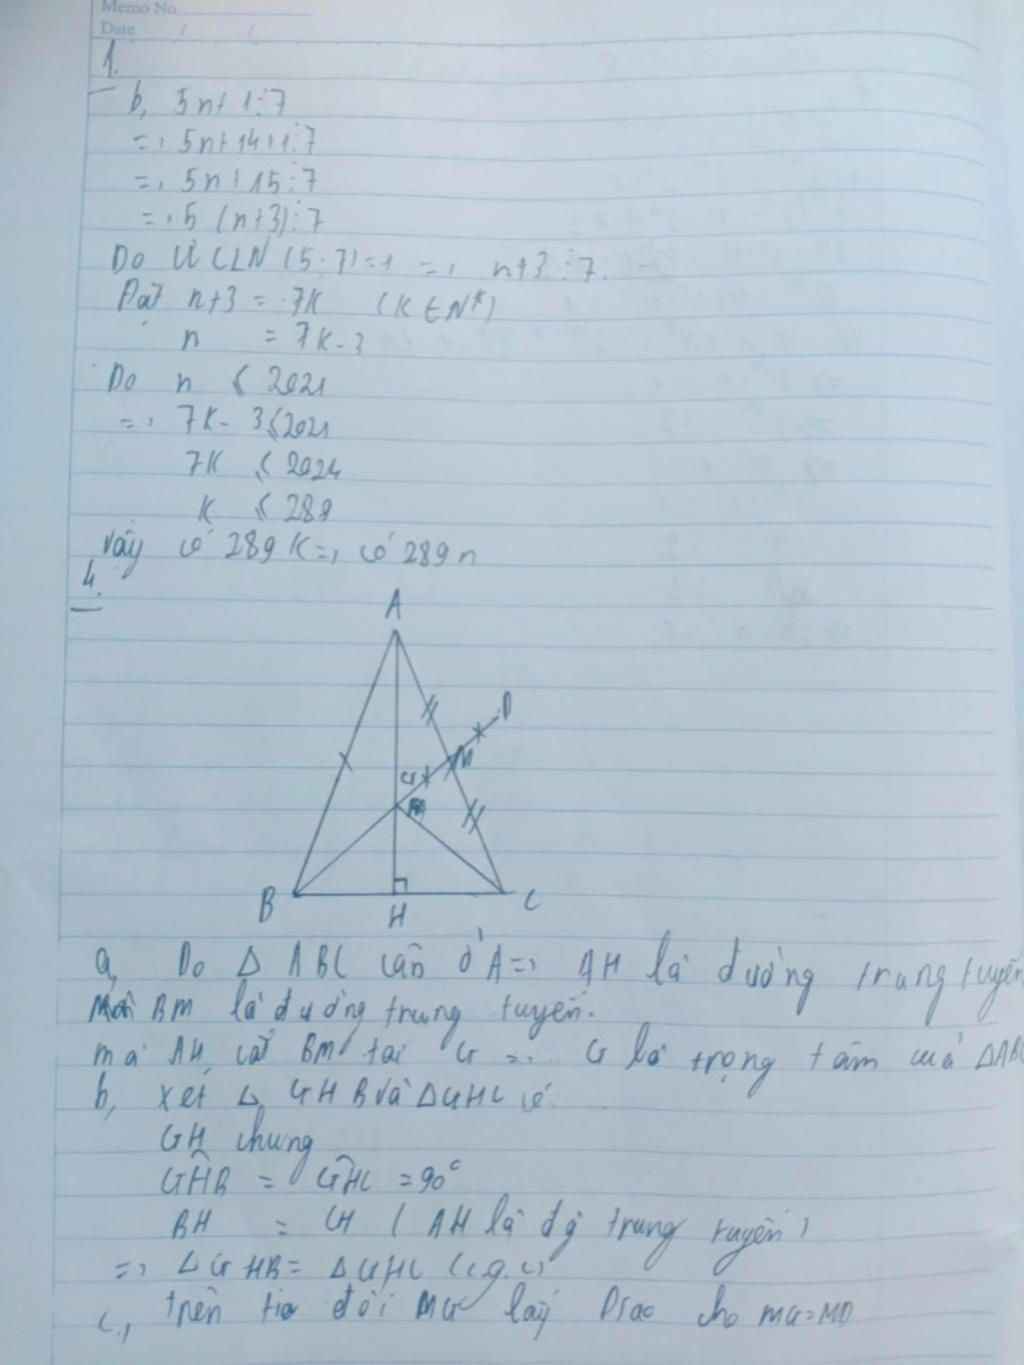 Memo No.
Date / /
1.
b, 5n+1⋮7
=> 5n+14+1⋮7
=> 5n+15⋮7
=> 5(n+3)⋮7
Do ƯCLN (5;7)=1 => n+3⋮7.
Đặt n+3 = 7K (K∈N*)
n = 7K-3
Do n ≤ 2021
=> 7K-3≤2021
7K ≤ 2024
K ≤ 289
Vậy có 289 K=> có 289 n
4.
A
D
M
G
B
H
C
a, Do Δ ABC cân ở A=> AH là đường trung tuyến
BM là đường trung tuyến.
mà AH cắt BM tại G => G là trọng tâm của ΔABC
b, xét Δ GHB và ΔGHC có:
GH chung
GĤB = GĤC =90°
BH = CH ( AH là đg trung tuyến)
=> ΔGHB= ΔGHC (c.g.c)
c, trên tia đối MG lấy D sao cho MG=MD